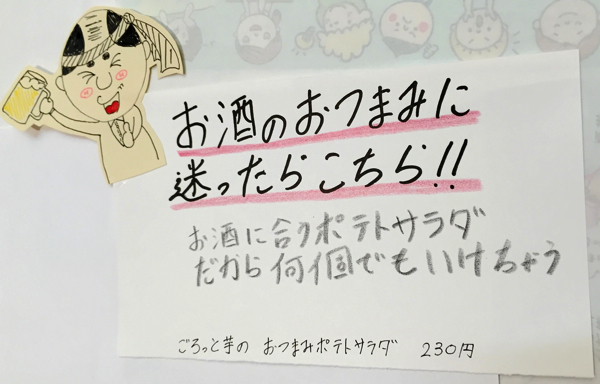 お酒のおつまみに
迷ったらこちら!!
お酒に合うポテトサラダ
だから何個でもいけちゃう
ごろっと芋の おつまみポテトサラダ 230円